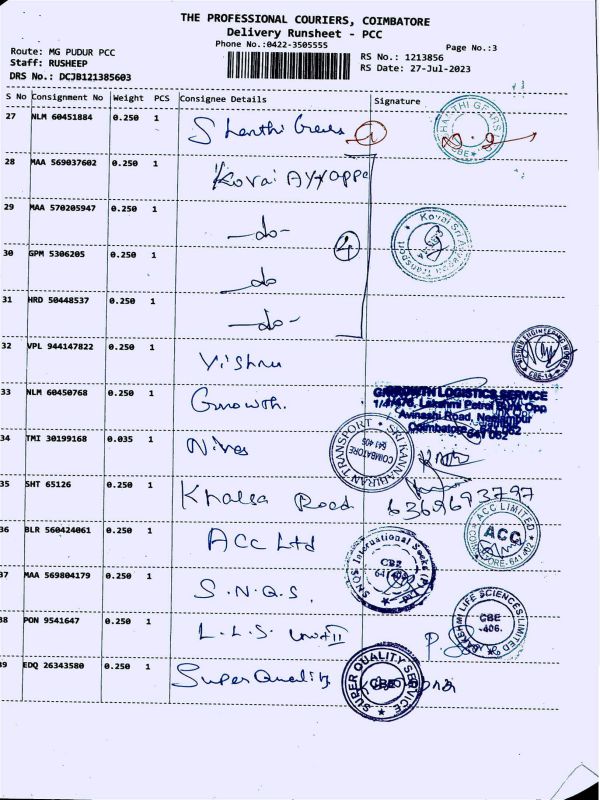 THE PROFESSIONAL COURIERS, COIMBATORE
Delivery Runsheet - PCC
Phone No.:0422-3505555
Page No.:3
Route: MG PUDUR PCC
RS No.: 1213856
Staff: RUSHEEP
RS Date: 27-Jul-2023
DRS No.: DCJB121385603
S No Consignment No Weight PCS Consignee Details Signature
27 NLM 60451884 0.250 1 Shanthi Gears
SHANTHI GEARS
CBE
28 MAA 569037602 0.250 1 Kovai Ayyappa
29 MAA 570205947 0.250 1 -do-
Kovai Sri Ayyappa Transport
30 GPM 5306205 0.250 1 -do
4
31 HRD 50448537 0.250 1 -do-
32 VPL 944147822 0.250 1 Vishnu
VISHNU ENGINEERING WORKS
CBE-14
33 NLM 60450768 0.250 1 Growth.
GROWTH LOGISTICS SERVICE
Lakshmi Petrol Bunk Opp
Avinashi Road, Neelambur
Coimbatore - 641 062
34 TMI 30199168 0.035 1
SRI KANNABHIRAN TRANSPORT
COIMBATORE
641 406
35 SHT 65126 0.250 1 Khalsa Road 6369693797
36 BLR 560424061 0.250 1 ACC Ltd
ACC LIMITED
ACC
COIMBATORE-641 402
37 MAA 569804179 0.250 1 S.N.Q.S.
SNQS International Socks (P) Ltd
CBE
38 PON 9541647 0.250 1 L.L.S. Unit II
LAKSHMI LIFE SCIENCES LIMITED
CBE
-406.
39 EDQ 26343580 0.250 1 Super Quality
SUPER QUALITY SERVICE
CBE